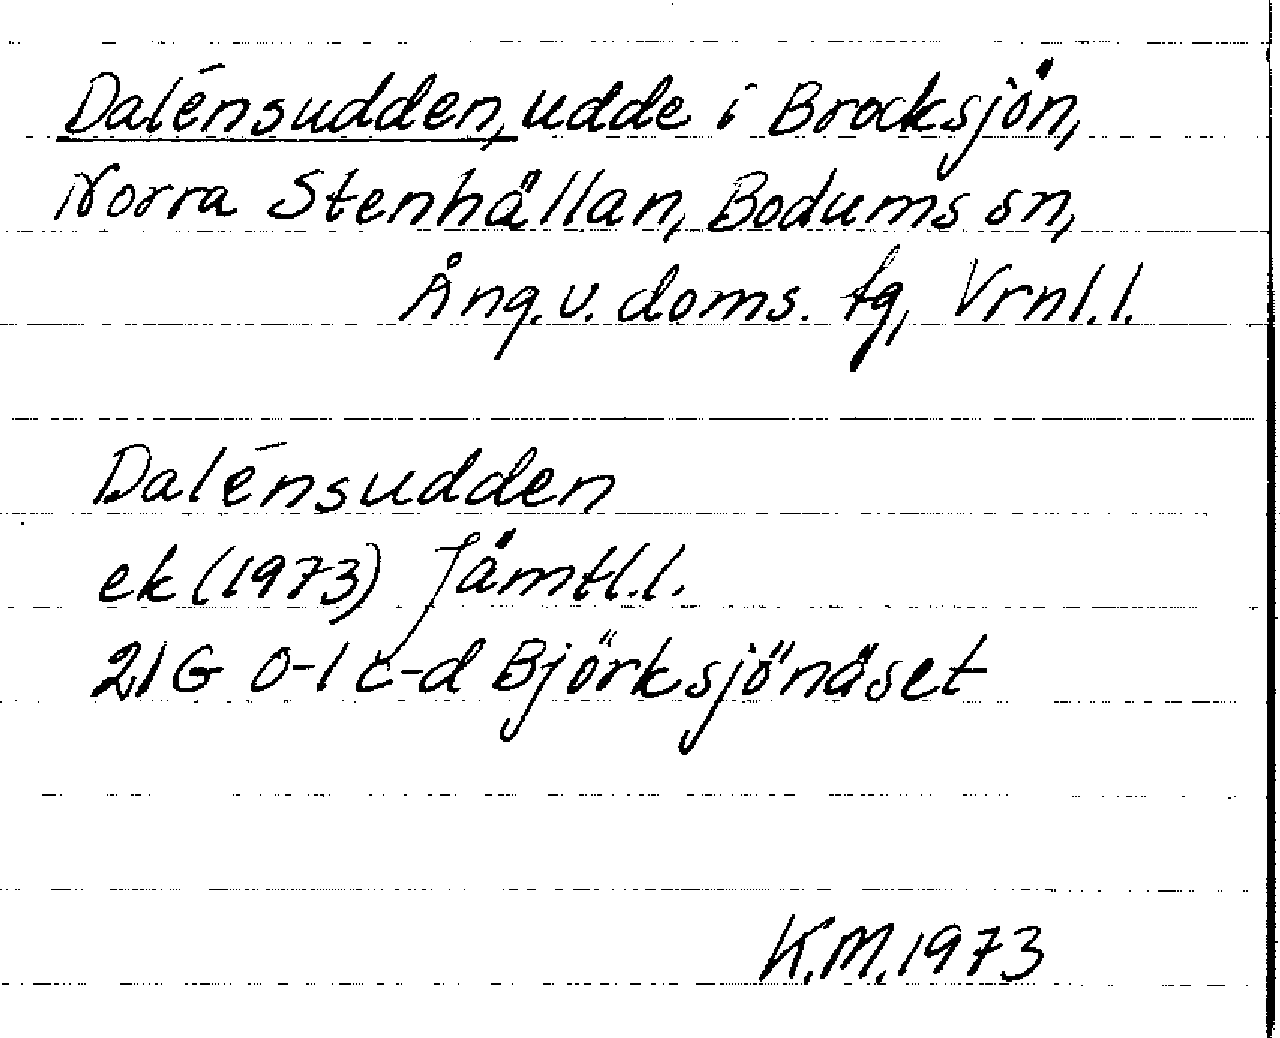 Dalénsudden, udde i Brocksjön,
Norra Stenhällan, Bodums sn,
Ång. v. doms. tg, Vrnl. l.
Dalénsudden
ek (1973) Jämtl. l.
21G 0-1 c-d Björksjönäset
K.M. 1973